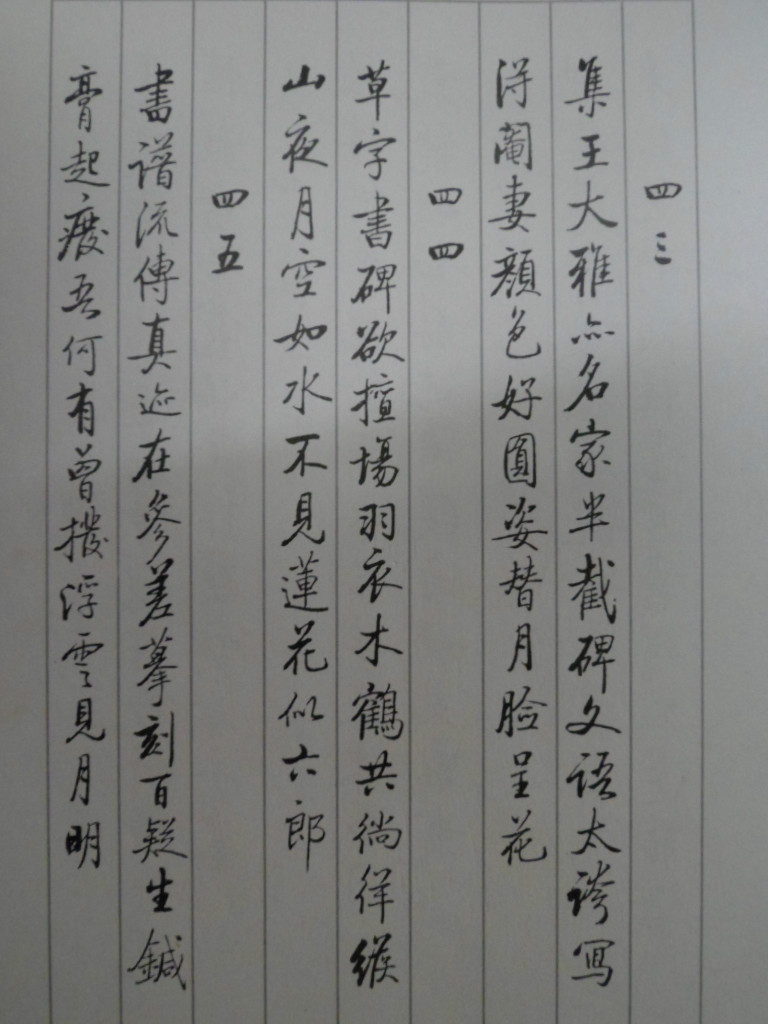 四三
集王大雅亦名家半截碑文語太誇寫
得闍妻顏色好圓姿替月臉呈花
四四
草字書碑欲擅場羽衣木鶴共徜徉緱
山夜月空如水不見蓮花似六郎
四五
書譜流傳真迹在參差摹刻百疑生鍼
膏起廢吾何有曾撥浮雲見月明